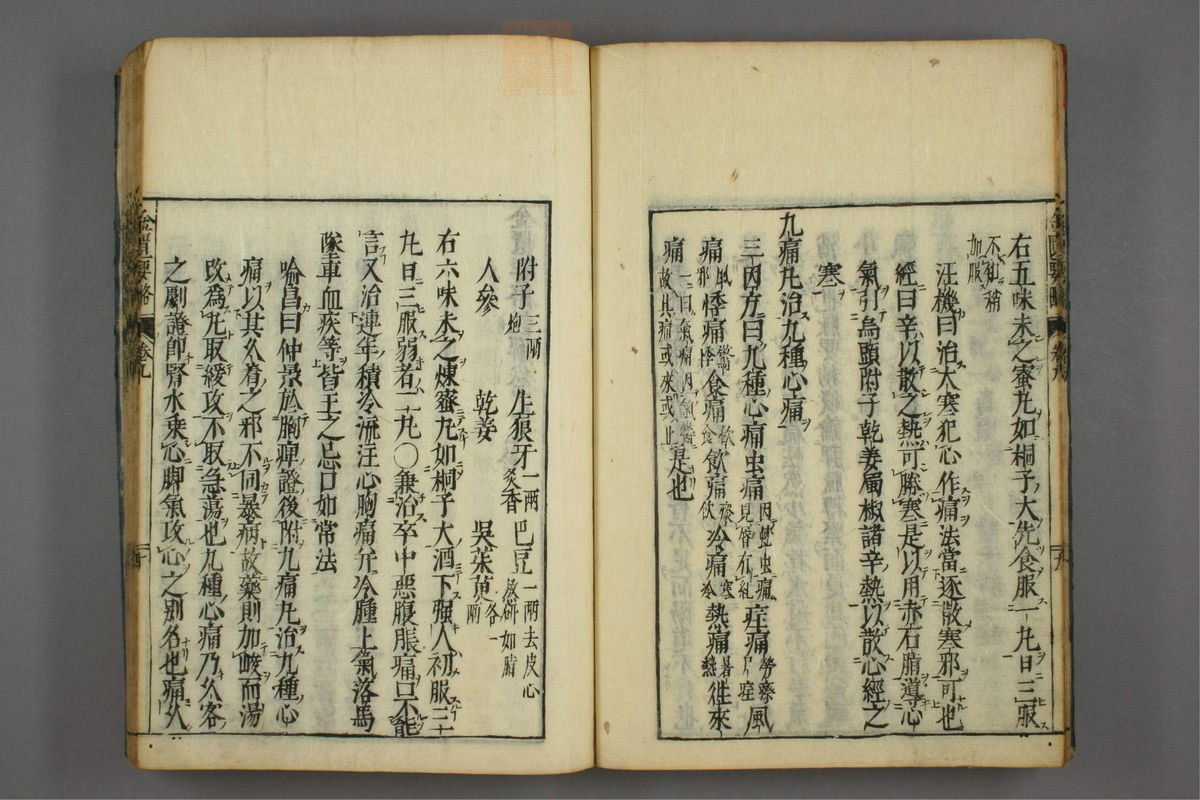 右五味末之蜜丸如桐子大先食服一丸日三服
不知稍
加服
汪機曰治大寒犯心作痛法當逐散寒邪可也
經曰辛以散之熱可勝寒是以用赤石脂導心
氣引烏頭附子乾姜蜀椒諸辛熱以散心經之
寒
九痛丸治九種心痛
三因方曰九種心痛虫痛
疰痛
風
痛
悸痛
食痛
飲痛
冷痛
熱痛
徃來
痛
是也
附子三兩
炮
生狼牙一兩
炙香
巴豆一兩去皮心
熬研如脂
人參
乾姜
吳茱萸各一
兩
右六味末之煉蜜丸如桐子大酒下強人初服三十
丸日三服弱者二丸〇兼治卒中惡腹脹痛口不能
言又治連年積冷流注心胸痛并冷腫上氣落馬
墜車血疾等皆主之忌口如常法
喻昌曰仲景於胸痺證後附九痛丸治九種心
痛以其久着之邪不同暴病故藥則加峻而湯
改為丸取緩攻不取急蕩也九種心痛乃久客
之劇證即腎水乗心脚氣攻心之别名也痛久